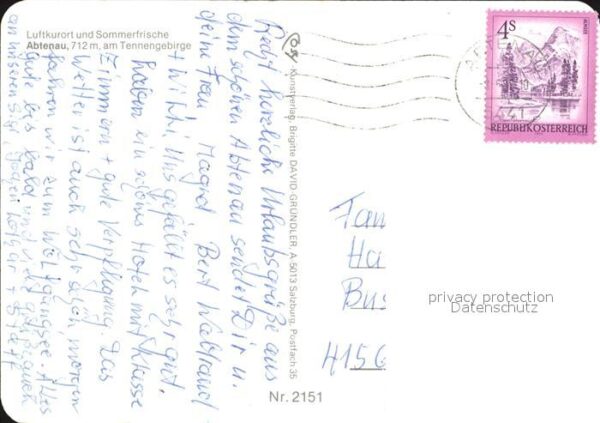 Luftkurort und Sommerfrische
Abtenau, 712 m, am Tennengebirge
Recht herzliche Urlaubsgrüße aus
dem schönen Abtenau sendet Dir u.
deine Frau Magret Bert Waltraud
+ Wilhi, Uns gefällt es sehr gut.
Haben ein schönes Hotel mit Klasse
Zimmern + gute Verpflegung. Das
Wetter ist auch sehr schön, morgen
fahren wir zum Wolfgangsee. Alles
gute bis bald und viele Grüße auch
an unseren
Kunstverlag Brigitte DAVID-GRÜNDLER, A-5013 Salzburg, Postfach 35
Nr. 2151
4 S
REPUBLIK ÖSTERREICH
Fam
Ha
Bus
4150
privacy protection
Datenschutz